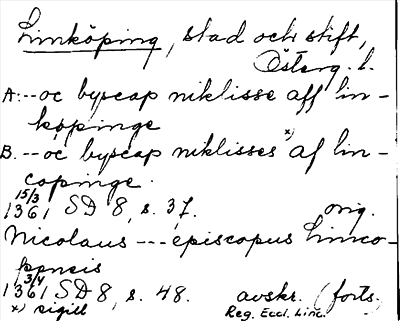 Linköping, stad och stift,
Österg. l.
A: -- oc byscap niklisse aff lin-
köpinge
B. -- oc byscap niklisses x) af lin-
copinge.
15/3
1361 SD 8, s. 37. orig.
Nicolaus --- episcopus Limco-
pensis
3/4
1361 SD 8, s. 48. avskr. (forts.)
x) sigill Reg. Eccl. Linc.